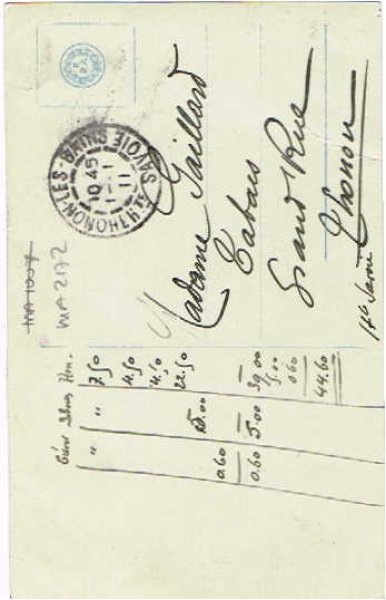 THONON-LES-BAINS
Hte SAVOIE
10 45
1-1
11
Madame Gaillard
Tabacs
Grand Rue
Thonon
Hte Savoie
MA 1007
MA2172
Hon.
" " 7.50
4.50
4.50
22.50
5.00
0.60
0.60 5.00 39.00
5.00
0.60
44.60